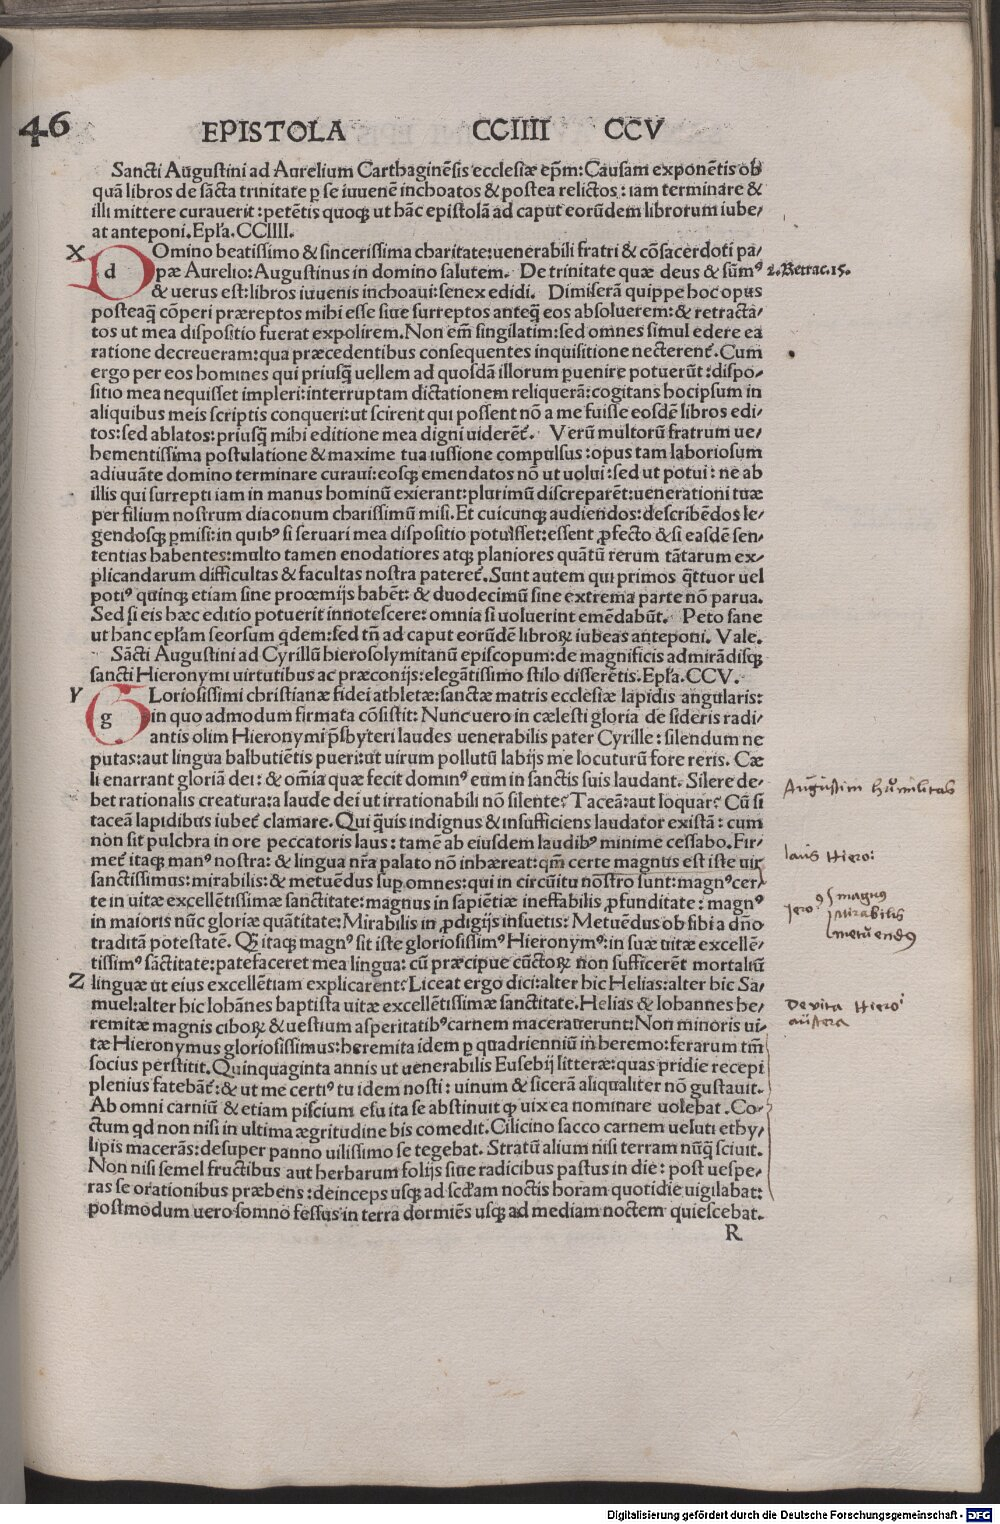 46
EPISTOLA CCIIII CCV
Sancti Augustini ad Aurelium Carthaginẽsis ecclesiæ ep̃m: Causam exponẽtis ob
quã libros de sãcta trinitate p̱ se iuuenẽ inchoatos & postea relictos: iam terminare &
illi mittere curauerit: petẽtis quoqꝫ ut hãc epistolã ad caput eorũdem librorum iube/
at anteponi. Epl̃a. CCIIII.
X
d
Omino beatissimo & sincerissima charitate: uenerabili fratri & cõsacerdoti pa/
pæ Aurelio: Augustinus in domino salutem. De trinitate quæ deus & sũmꝰ
2. Retrac. 15.
& uerus est: libros iuuenis inchoaui: senex edidi. Dimiserã quippe hoc opus
posteaq̃ cõperi præreptos mihi esse siue surreptos anteq̃ eos absoluerem: & retractã/
tos ut mea dispositio fuerat expolirem. Non em̃ singilatim: sed omnes simul edere ea
ratione decreueram: qua præcedentibus consequentes inquisitione necterent᷑. Cum
ergo per eos homines qui priusq̃ uellem ad quosdã illorum p̱uenire potuerũt: dispo/
sitio mea nequisset impleri: interruptam dictationem reliquerã: cogitans hoc ipsum in
aliquibus meis scriptis conqueri: ut scirent qui possent nõ a me fuisse eosdẽ libros edi/
tos: sed ablatos: priusq̃ mihi editione mea digni uiderẽt᷑. Verũ multorũ fratrum ue/
hementissima postulatione & maxime tua iussione compulsus: opus tam laboriosum
adiuuãte domino terminare curaui: eosqꝫ emendatos nõ ut uolui: sed ut potui: ne ab
illis qui surrepti iam in manus hominũ exierant: plurimũ discreparẽt: uenerationi tuæ
per filium nostrum diaconum charissimũ misi. Et cuicunqꝫ audiendos: describẽdos le/
gendosqꝫ p̱misi: in quibꝰ si seruari mea dispositio potuisset: essent ꝓfecto & si easdẽ sen/
tentias habentes: multo tamen enodatiores atqꝫ planiores quãtũ rerum tãtarum ex/
plicandarum difficultas & facultas nostra pateret᷑. Sunt autem qui primos q̃ttuor uel
potiꝰ quinqꝫ etiam sine procemijs habẽt: & duodecimũ sine extrema parte nõ parua.
Sed si eis hæc editio potuerit innotescere: omnia si uoluerint emẽdabũt. Peto sane
ut hanc epl̃am seorsum q̃dem: sed tñ ad caput eorũdẽ libroꝝ iubeas anteponi. Vale.
Sãcti Augustini ad Cyrillũ hierosolymitanũ episcopum: de magnificis admirãdisqꝫ
sancti Hieronymi uirtutibus ac præconijs: elegãtissimo stilo disserẽtis. Epl̃a. CCV.
Y
g
Loriosissimi christianæ fidei athletæ: sanctæ matris ecclesiæ lapidis angularis:
in quo admodum firmata cõsistit: Nunc uero in cælesti gloria de sideris radi/
antis olim Hieronymi p̃sbyteri laudes uenerabilis pater Cyrille: silendum ne
putas: aut lingua balbutiẽtis pueri: ut uirum pollutũ labijs me locuturũ fore reris. Cæ
li enarrant gloriã dei: & om̃ia quæ fecit dominꝰ eum in sanctis suis laudant. Silere de/
Augustini humilitas
bet rationalis creatura: a laude dei ut irrationabili nõ silente? Taceã: aut loquar? Cũ si
taceã lapidibus iubet᷑ clamare. Qui q̃uis indignus & insufficiens laudator existã: cum
non sit pulchra in ore peccatoris laus: tamẽ ab eiusdem laudibꝰ minime cessabo. Fir/
laus Hiero:
met᷑ itaqꝫ manꝰ nostra: & lingua nr̃a palato nõ inhæreat: qm̃ certe magnus est iste uir
sanctissimus: mirabilis: & metuẽdus sup̱ omnes: qui in circũitu nostro sunt: magnꝰ cer/
te in uitæ excellẽtissimæ sanctitate: magnus in sapiẽtiæ ineffabilis ꝓfunditate: magnꝰ
Jeroꝰ { magnus
in maioris nũc gloriæ quãtitate: Mirabilis in ꝓdigijs insuetis: Metuẽdus ob sibi a dño
mirabilis
traditã potestatẽ. Q̃ itaqꝫ magnꝰ sit iste gloriosissimꝰ Hieronymꝰ: in suæ uitæ excellẽ/
metuendꝰ
tissimꝰ sãctitate: patefaceret mea lingua: cũ præcipue cũctoꝝ non sufficerẽt mortaliũ
Z
linguæ ut eius excellẽtiam explicarent? Liceat ergo dici: alter hic Helias: alter hic Sa/
muel: alter hic Iohãnes baptista uitæ excellẽtissimæ sanctitate. Helias & Iohannes he/
De vita Hieroⁱ
remitæ magnis ciboꝝ & uestium asperitatibꝰ carnem macerauerunt: Non minoris ui/
austera
tæ Hieronymus gloriosissimus: heremita idem p̱ quadrienniũ in heremo: ferarum tm̃
socius perstitit. Quinquaginta annis ut uenerabilis Eusebij litteræ: quas pridie recepi
plenius fatebãt᷑: & ut me certiꝰ tu idem nosti: uinum & sicerã aliqualiter nõ gustauit.
Ab omni carniũ & etiam piscium esu ita se abstinuit ꝙ uix ea nominare uolebat. Co/
ctum q̃d non nisi in ultima ægritudine bis comedit. Cilicino sacco carnem ueluti ethy/
lipis macerãs: desuper panno uilissimo se tegebat. Stratũ alium nisi terram nũq̃ sciuit.
Non nisi semel fructibus aut herbarum folijs siue radicibus pastus in die: post uespe/
ras se orationibus præbens: deinceps usqꝫ ad scd̃am noctis horam quotidie uigilabat:
postmodum uero somno fessus in terra dormiẽs usqꝫ ad mediam noctem quiescebat.
R
Digitalisierung gefördert durch die Deutsche Forschungsgemeinschaft - DFG